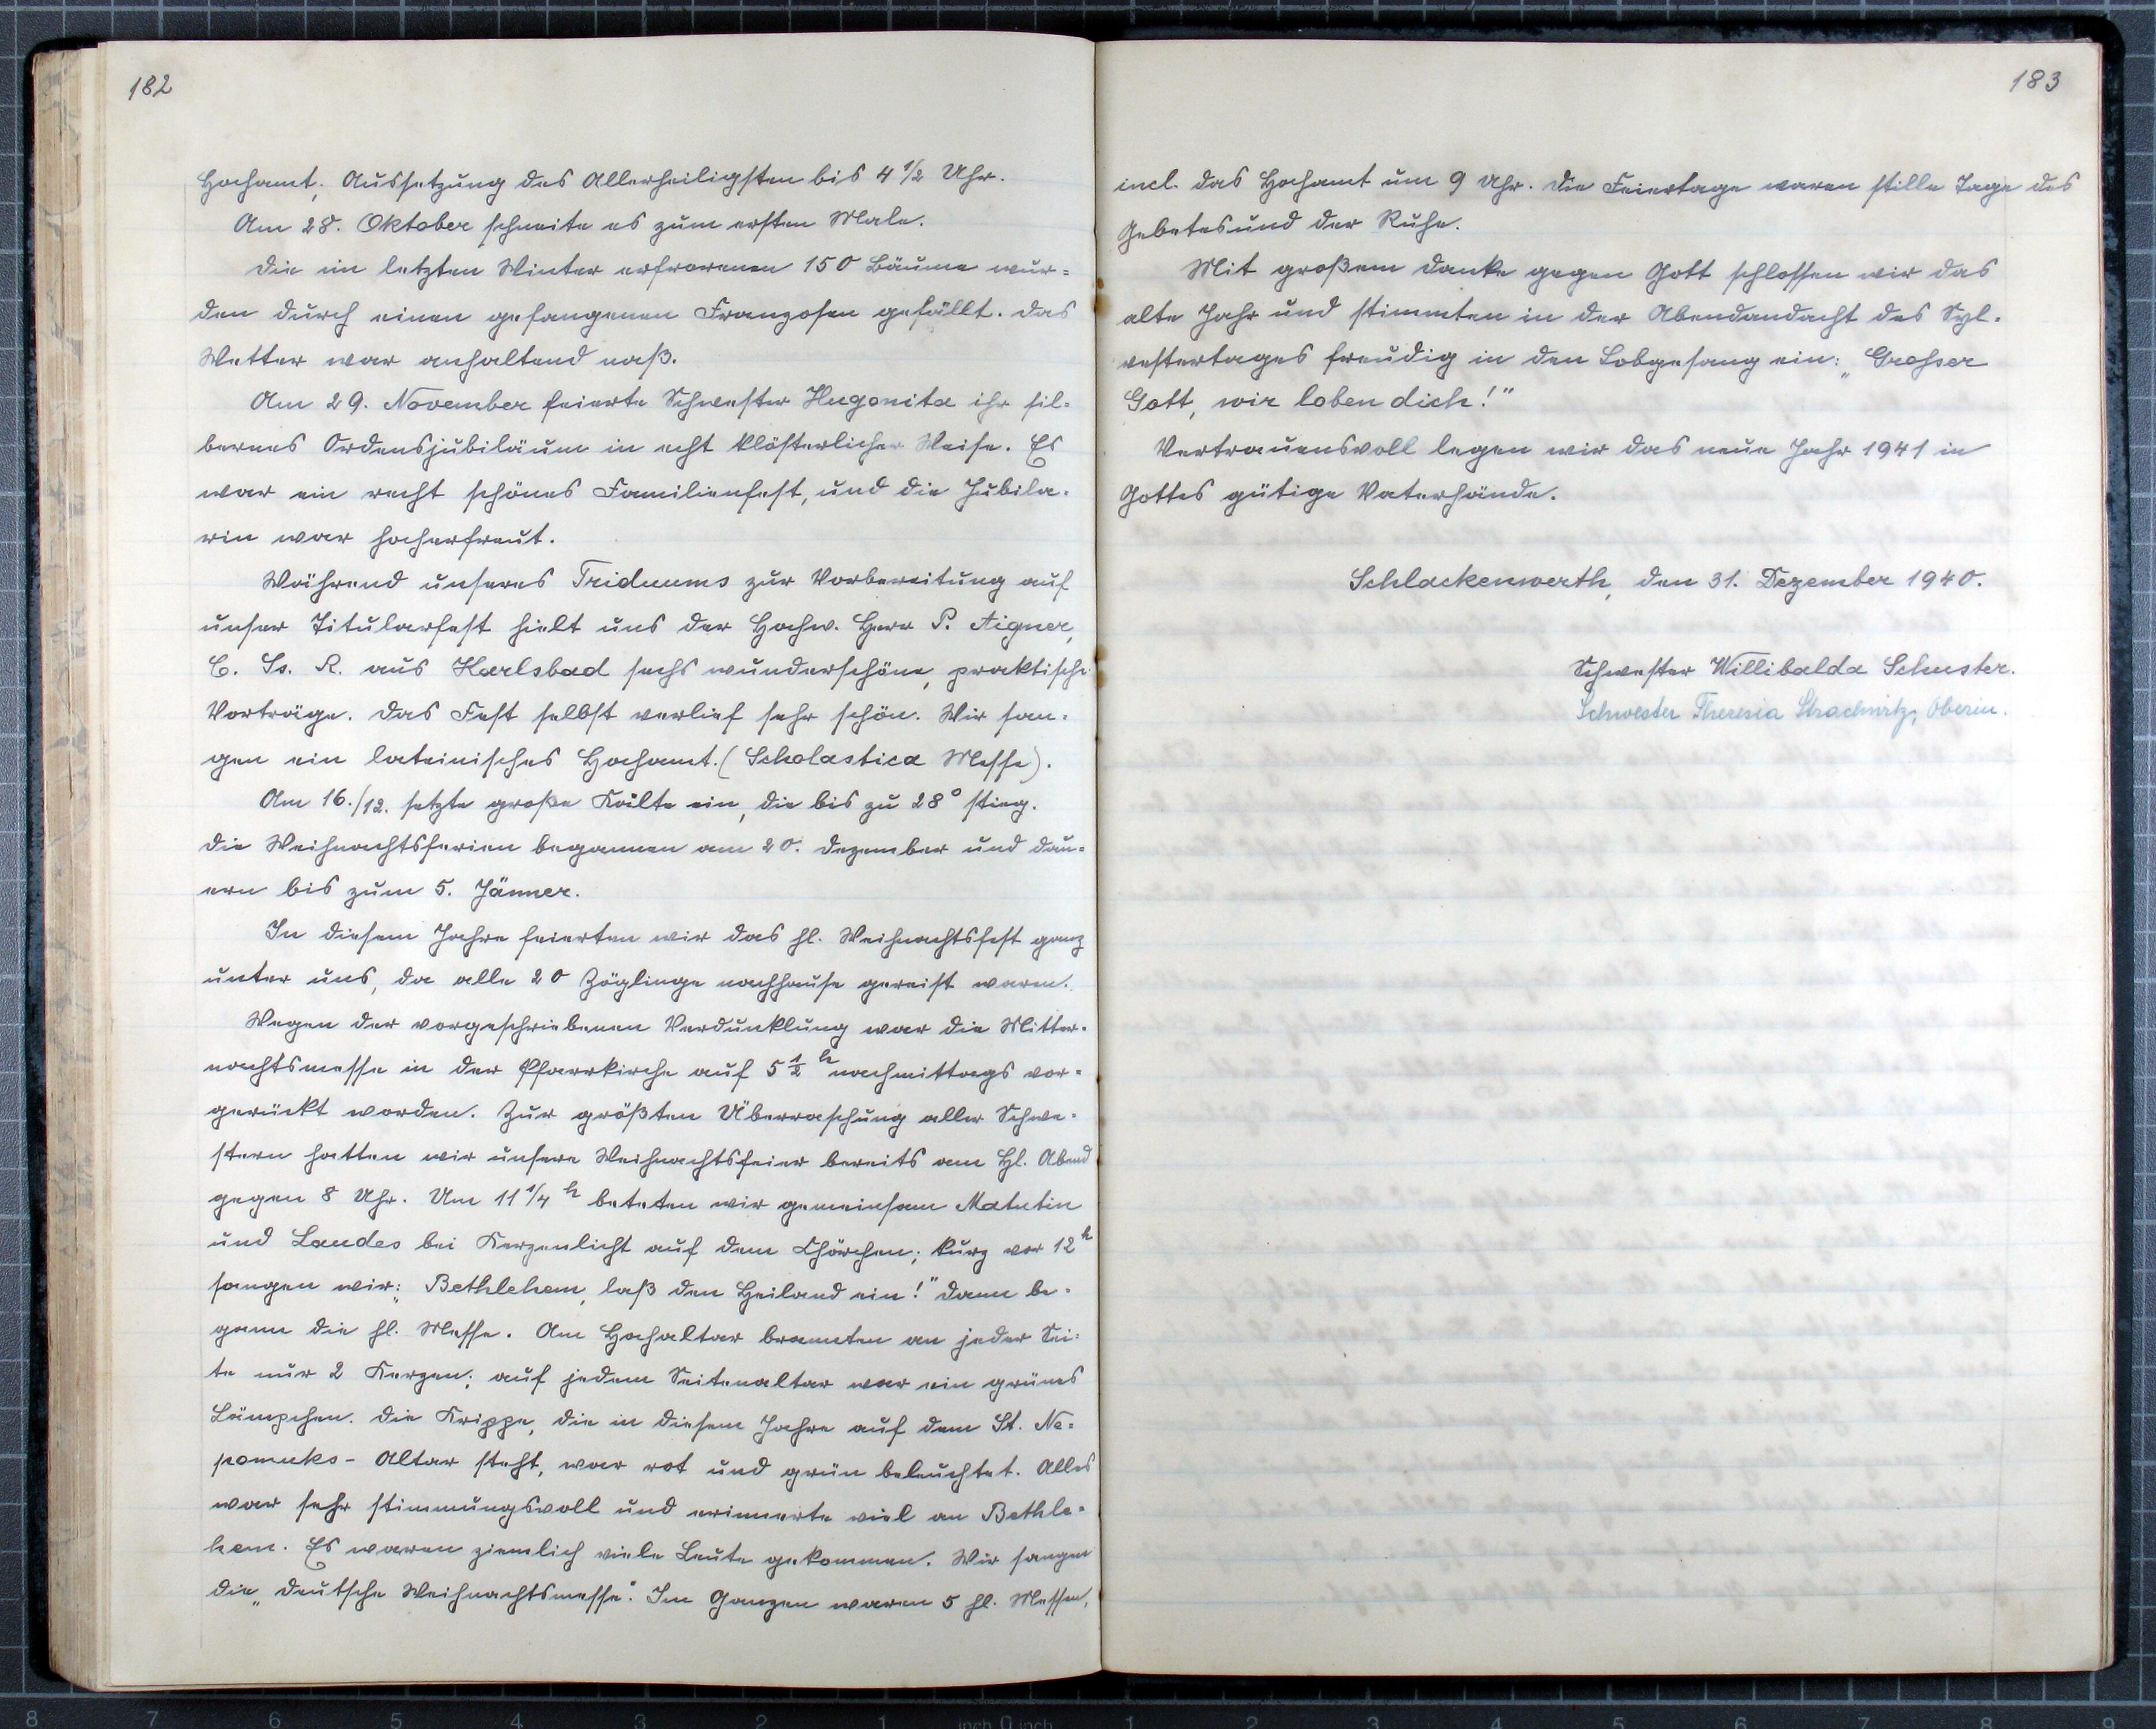 182
Hochamt, Aussetzung des Allerheiligsten bis 4 1/2 Uhr.
Am 28. Oktober schneite es zum ersten Male.
Die im letzten Winter erfrorenen 150 Bäume wur=
den durch einen gefangenen Franzosen gefällt. Das
Wetter war anhaltend naß.
Am 29. November feierte Schwester Hugonita ihr sil=
bernes Ordensjubiläum in echt klösterlicher Weise. Es
war ein recht schönes Familienfest, und die Jubila=
rin war hocherfreut.
Während unseres Triduums zur Vorbereitung auf
unser Titularfest hielt uns der Hochw. Herr P. Aigner,
C. Ss. R. aus Karlsbad sechs wunderschöne, praktische
Vorträge. Das Fest selbst verlief sehr schön. Wir san=
gen ein lateinisches Hochamt. (Scholastica Messe).
Am 16./12. setzte große Kälte ein, die bis zu 28° stieg.
Die Weihnachtsferien begannen am 20. Dezember und dau=
ern bis zum 5. Jänner.
In diesem Jahre feierten wir das hl. Weihnachtsfest ganz
unter uns, da alle 20 Zöglinge nachhause gereist waren.
Wegen der vorgeschriebenen Verdunklung war die Mitter=
nachtsmesse in der Pfarrkirche auf 5 1/2 h nachmittags vor=
gerückt worden. Zur größten Überraschung aller Schwe=
stern hatten wir unsere Weihnachtsfeier bereits am Hl. Abend
gegen 8 Uhr. Um 11 1/4 h beteten wir gemeinsam Matutin
und Laudes bei Kerzenlicht auf dem Chörchen; kurz vor 12 h
sangen wir: „Bethlehem, laß den Heiland ein!" Dann be=
gann die hl. Messe. Am Hochaltar brannten an jeder Sei=
te nur 2 Kerzen; auf jedem Seitenaltar war ein grünes
Lämpchen. Die Krippe, die in diesem Jahre auf dem St. Ne=
pomuks- Altar steht, war rot und grün beleuchtet. Alles
war sehr stimmungsvoll und erinnerte viel an Bethle=
hem. Es waren ziemlich viele Leute gekommen. Wir sangen
die „Deutsche Weihnachtsmesse". Im Ganzen waren 5 hl. Messen,
183
incl. das Hochamt um 9 Uhr. Die Feiertage waren stille Tage des
Gebetes und der Ruhe.
Mit großem Danke gegen Gott schlossen wir das
alte Jahr und stimmten in der Abendandacht des Syl=
vestertages freudig in den Lobgesang ein: „Grosser
Gott, wir loben dich!"
Vertrauensvoll legen wir das neue Jahr 1941 in
Gottes gütige Vaterhände.
Schlackenwerth, den 31. Dezember 1940.
Schwester Willibalda Schuster.
Schwester Theresia Strachwitz, Oberin.
8 7 6 5 4 3 2 1 inch 0 inch 1 2 3 4 5 6 7 8 9